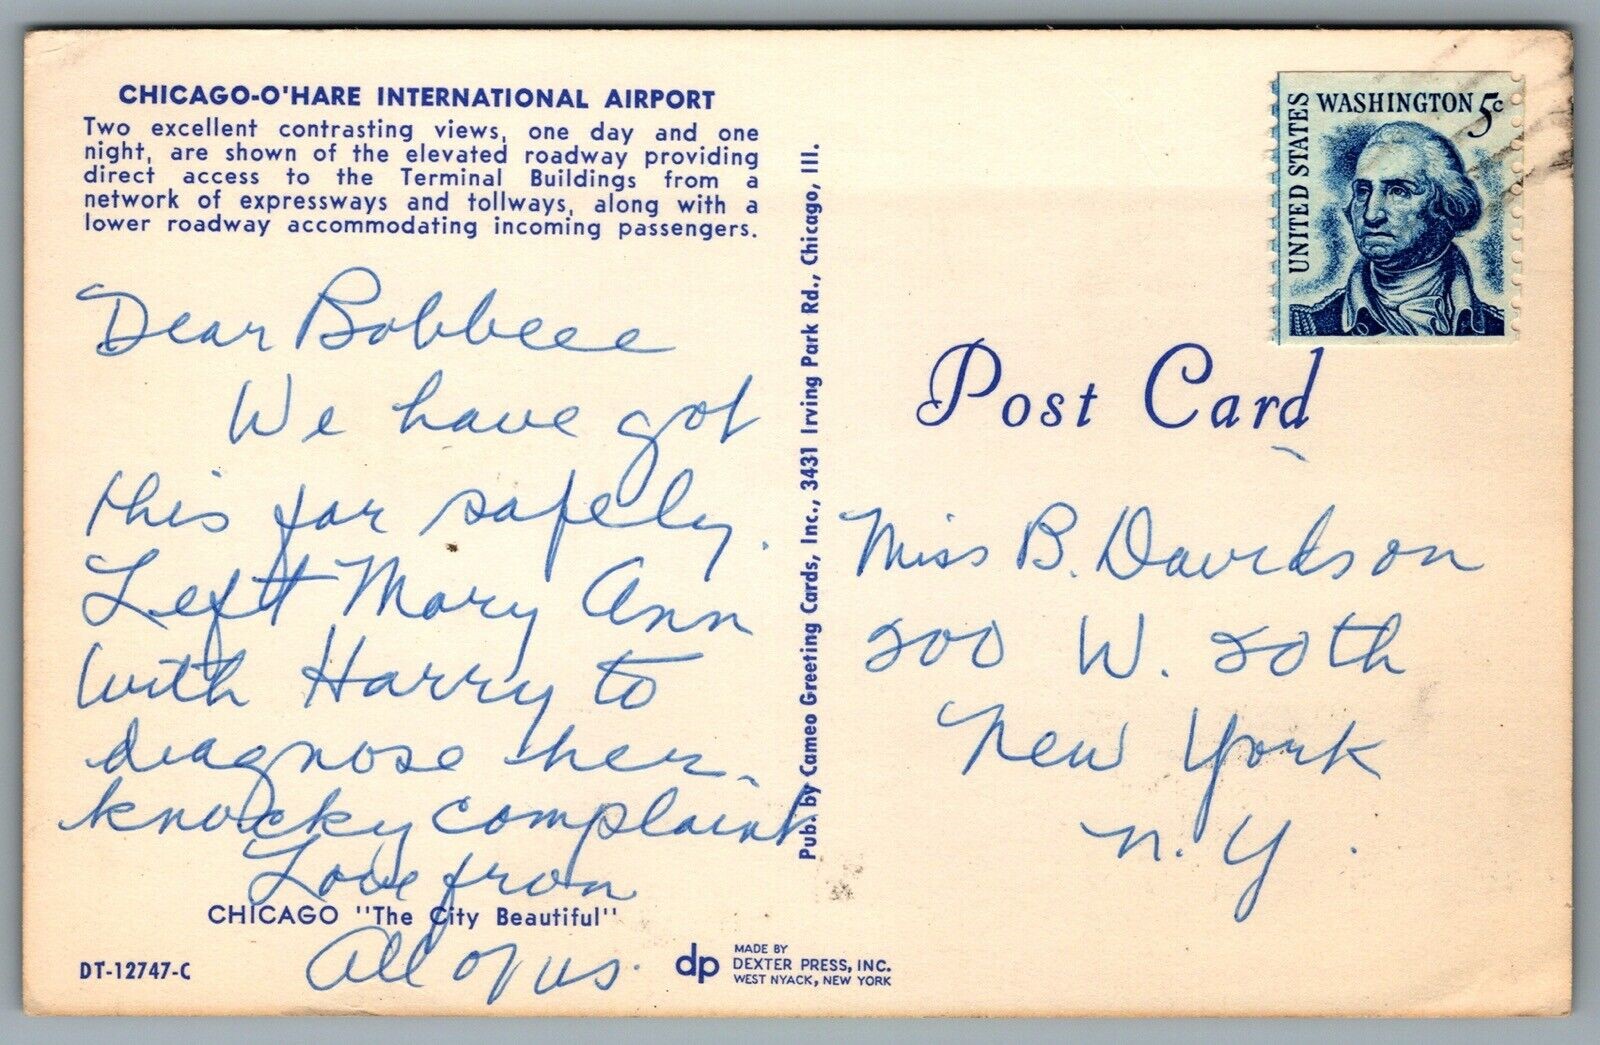 CHICAGO-O'HARE INTERNATIONAL AIRPORT
Two excellent contrasting views, one day and one
night, are shown of the elevated roadway providing
direct access to the Terminal Buildings from a
network of expressways and tollways, along with a
lower roadway accommodating incoming passengers.
Dear Bobbeee
We have got
this far safely.
Left Mary Ann
with Harry to
diagnose her
knocky complaint
Love from
All of us.
CHICAGO "The City Beautiful"
DT-12747-C
dp
MADE BY
DEXTER PRESS, INC.
WEST NYACK, NEW YORK
Pub. by Cameo Greeting Cards, Inc., 3431 Irving Park Rd., Chicago, Ill.
UNITED STATES
WASHINGTON 5c
Post Card
Miss B. Davidson
200 W. 20th
New York
N.Y.